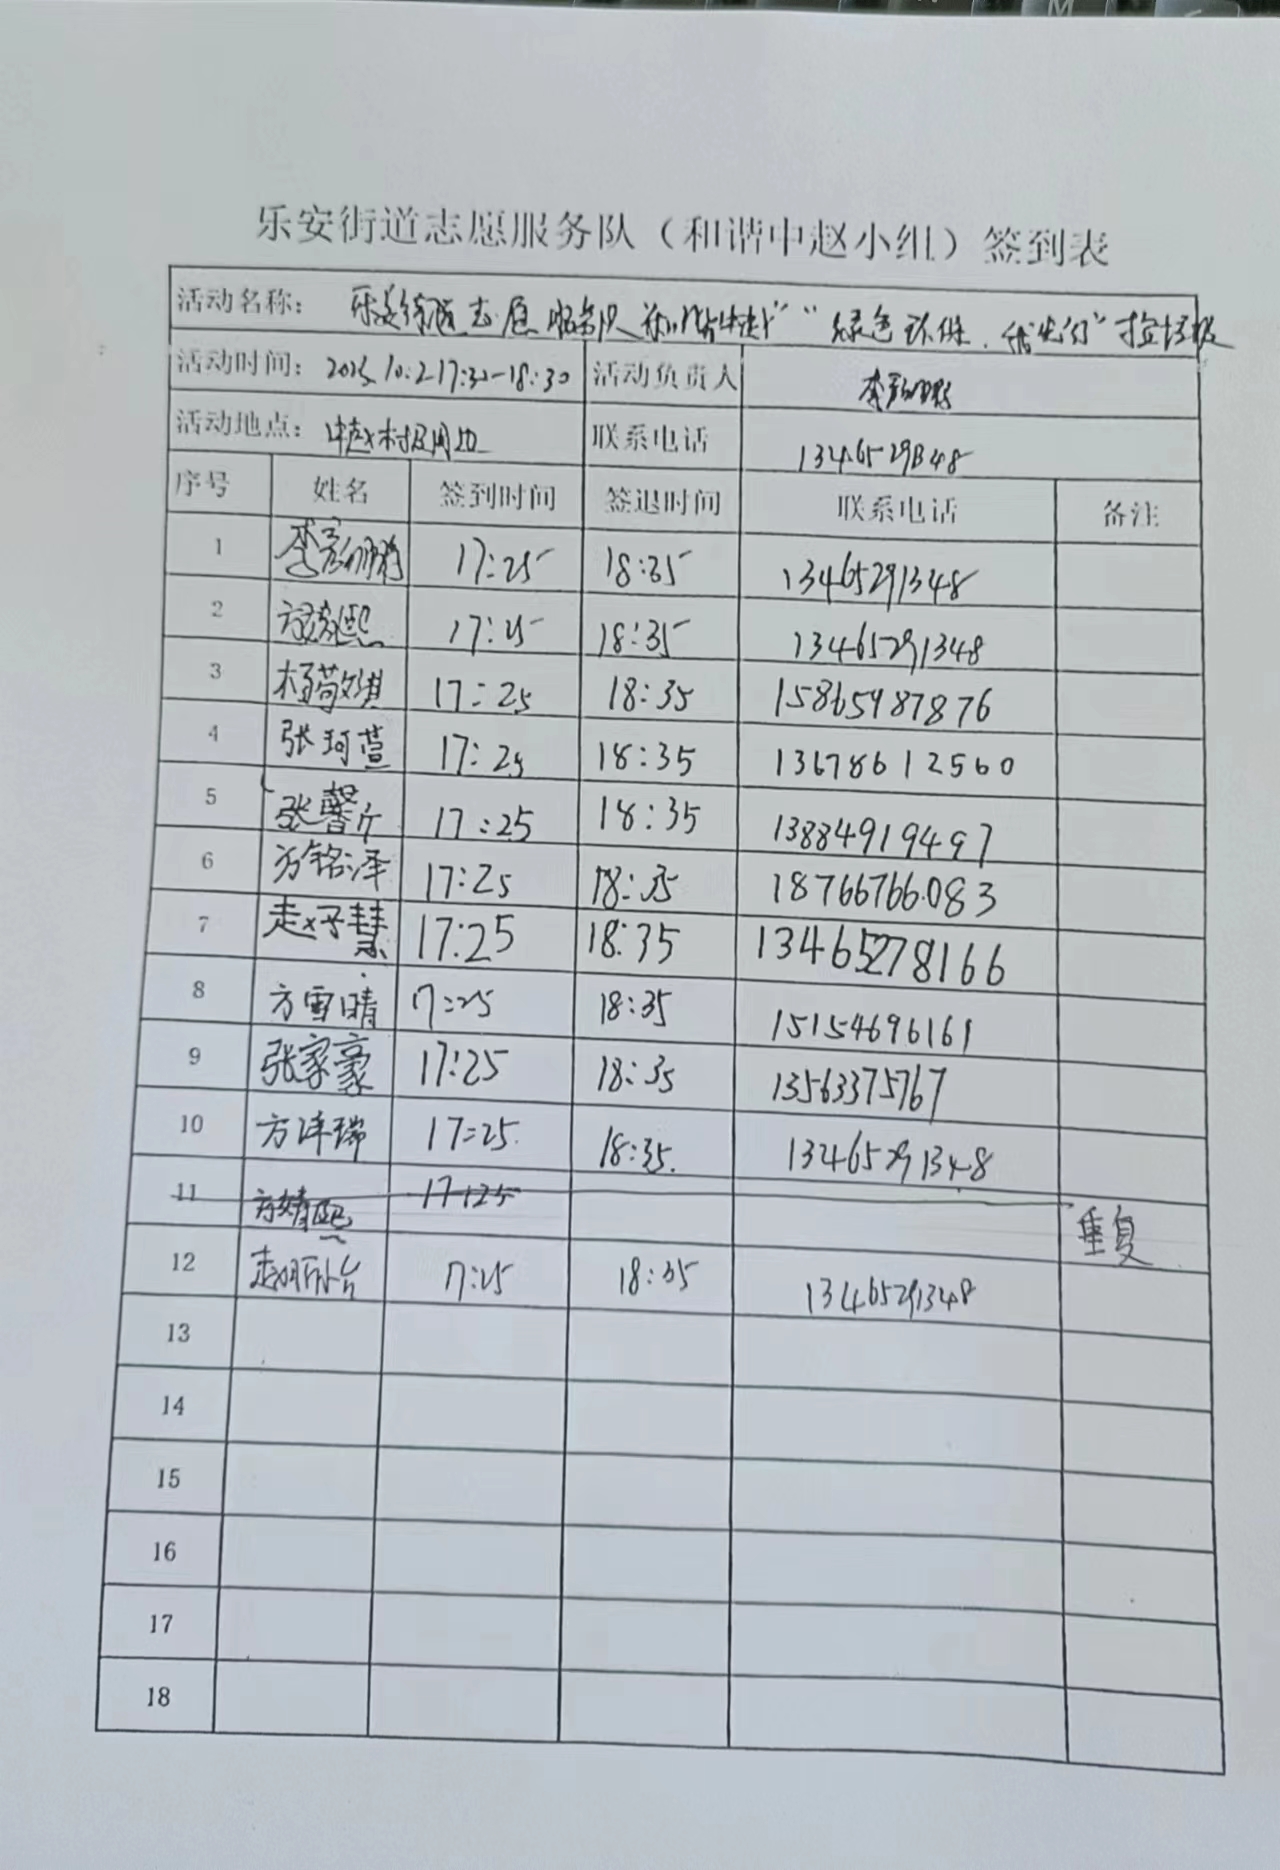 乐安街道志愿服务队（和谐中赵小组）签到表
活动名称： 乐安街道志愿服务队 "绿色环保、 先行"捡垃圾
活动时间： 10.2 17:30-18:30 活动负责人
活动地点： 中赵村及周边 联系电话 13465291348
序号 姓名 签到时间 签退时间 联系电话 备注
1 17:25 18:35 13465291348
2 17:25 18:35 13465291348
3 杨敬淇 17:25 18:35 15865987876
4 张珂萱 17:25 18:35 13678612560
5 张馨 17:25 18:35 13884919497
6 方铭泽 17:25 18:35 18766766083
7 赵子慧 17:25 18:35 13465278166
8 方雪晴 17:25 18:35 15154696161
9 张家豪 17:25 18:35 13563375767
10 方泽瑞 17:25 18:35 13465291348
11 方婧熙 17:25 重复
12 17:25 18:35 13465291348
13
14
15
16
17
18